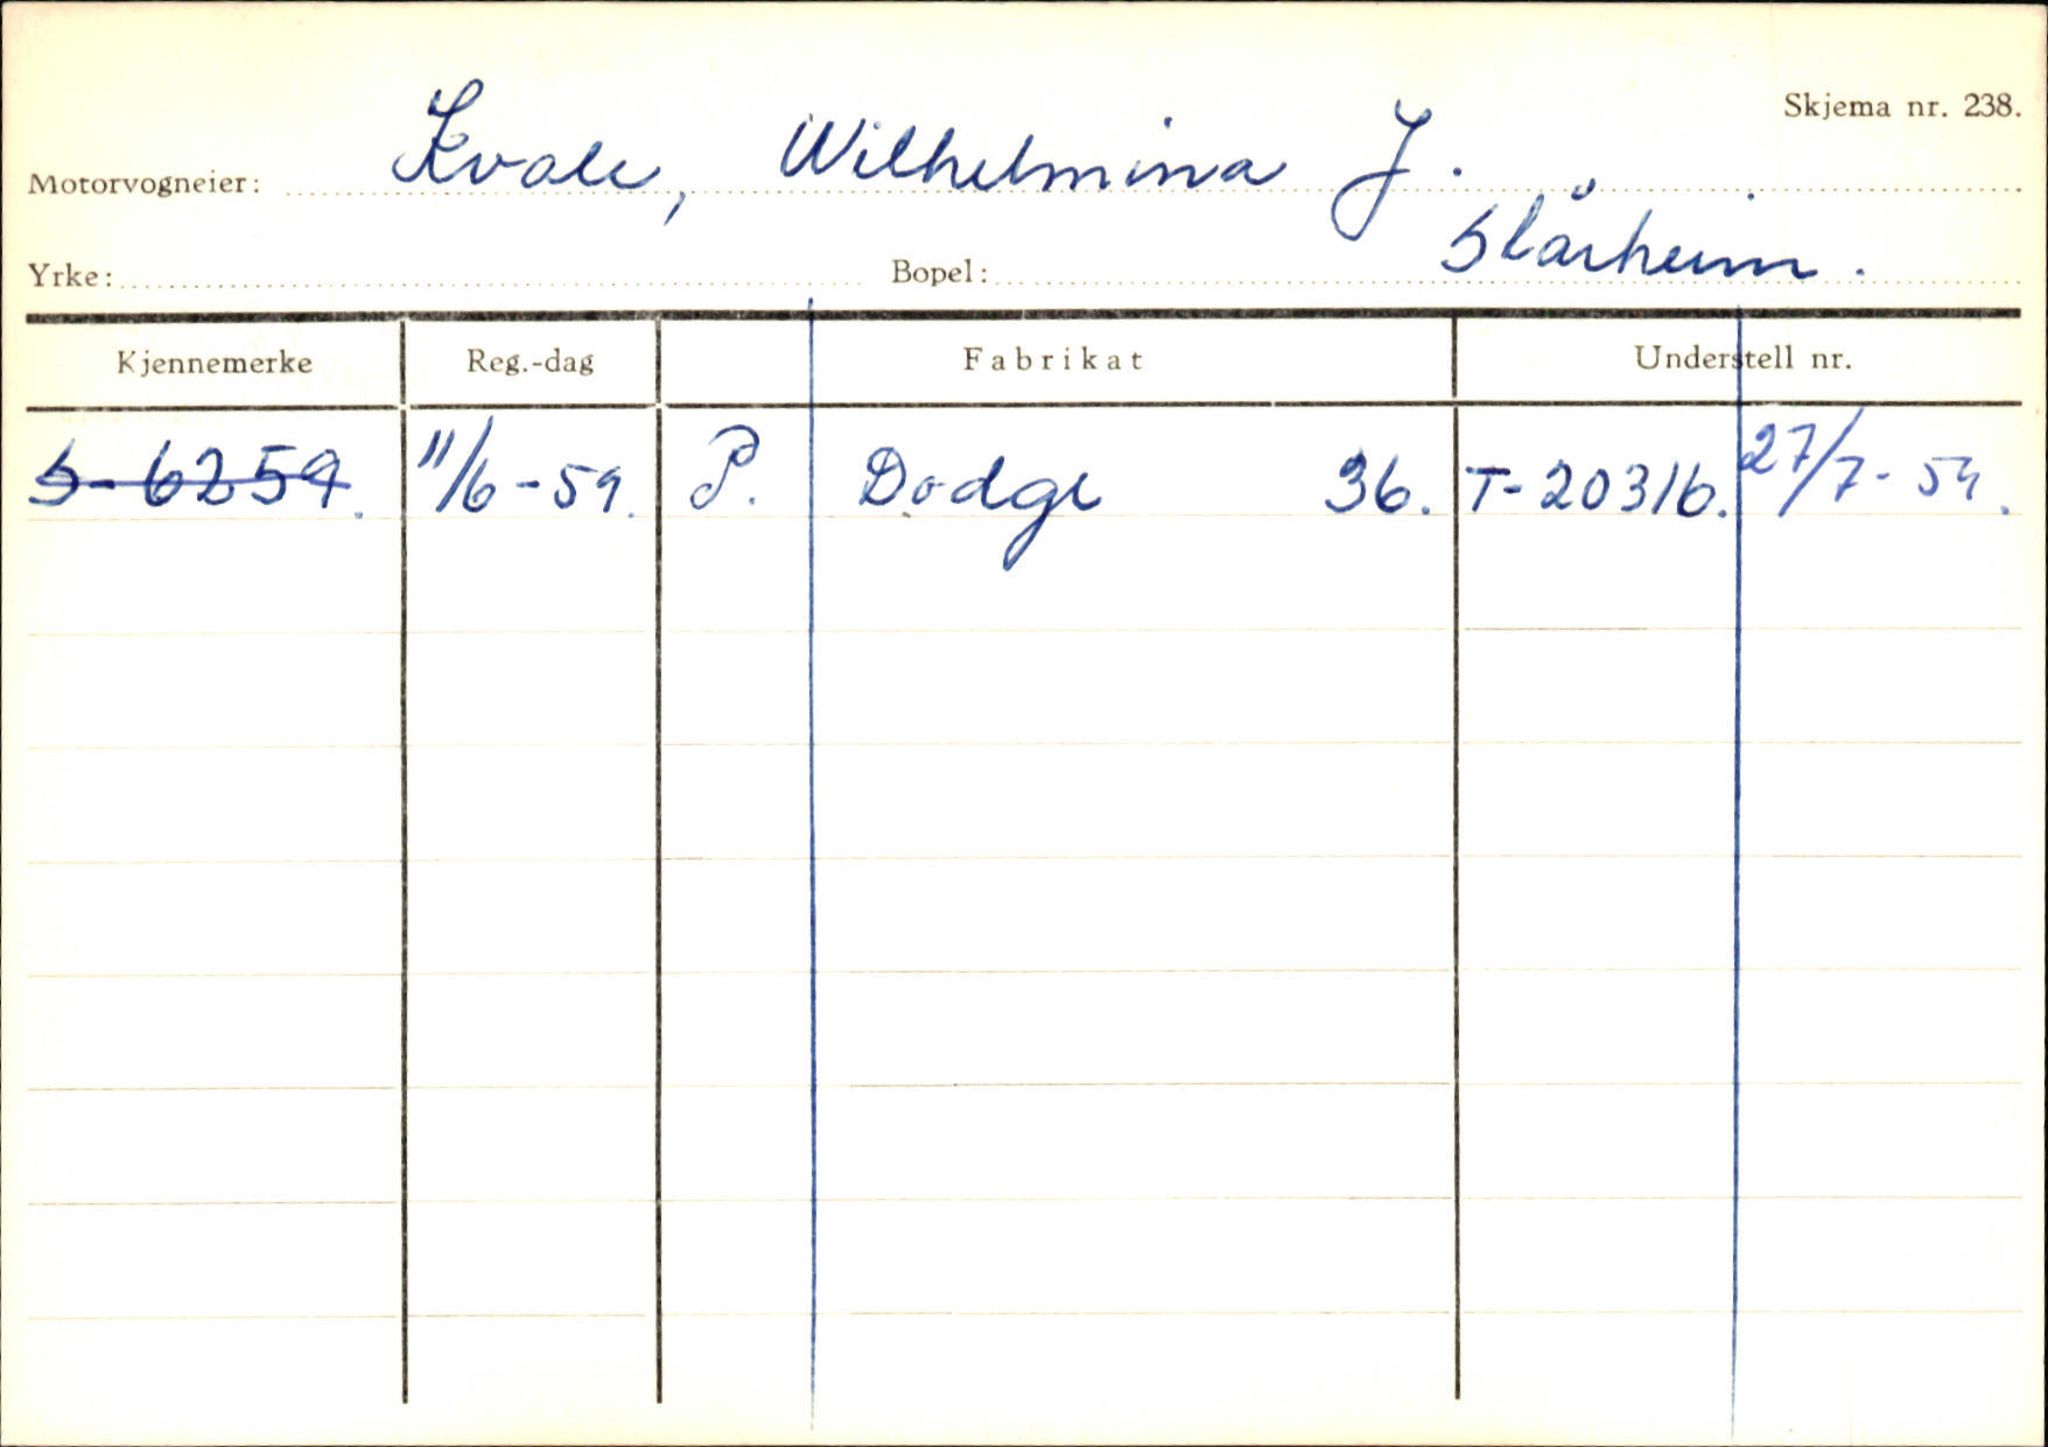 Skjema nr. 238.
Motorvogneier: Kvale, Wilhelmina J.
Yrke: Bopel: Stårheim.
Kjennemerke Reg.-dag Fabrikat Understell nr.
S-6259. 11/6-59. P. Dodge 36. T-20316. 27/7-59.